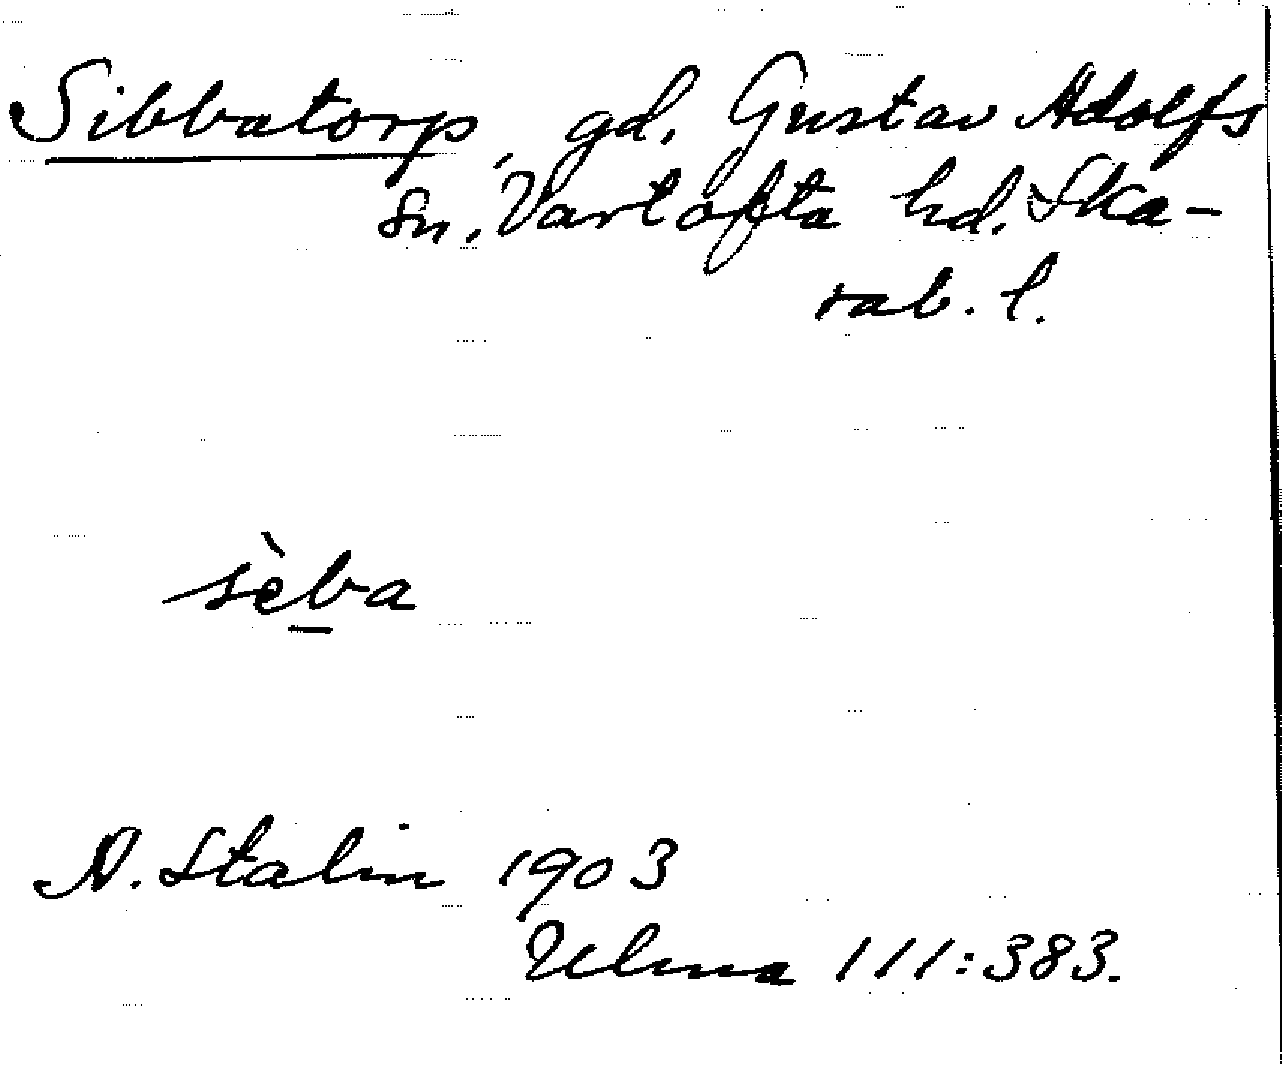 Sibbatorp, gd. Gustav Adolfs
sn, Vartofta hd. Ska-
rab. l.
sèba
N. Stalin 1903
Ulma 111:383.